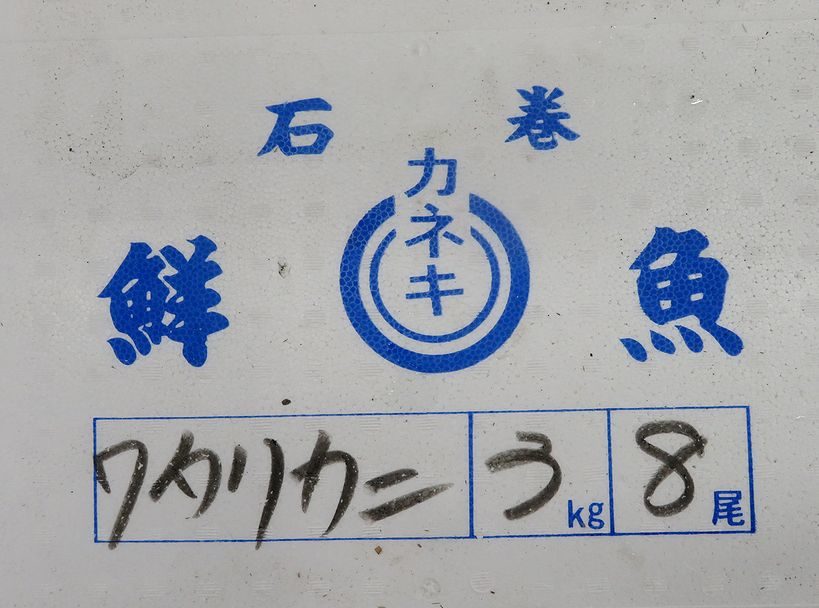 石巻
カネキ
鮮魚
ワタリカニ 3kg 8尾